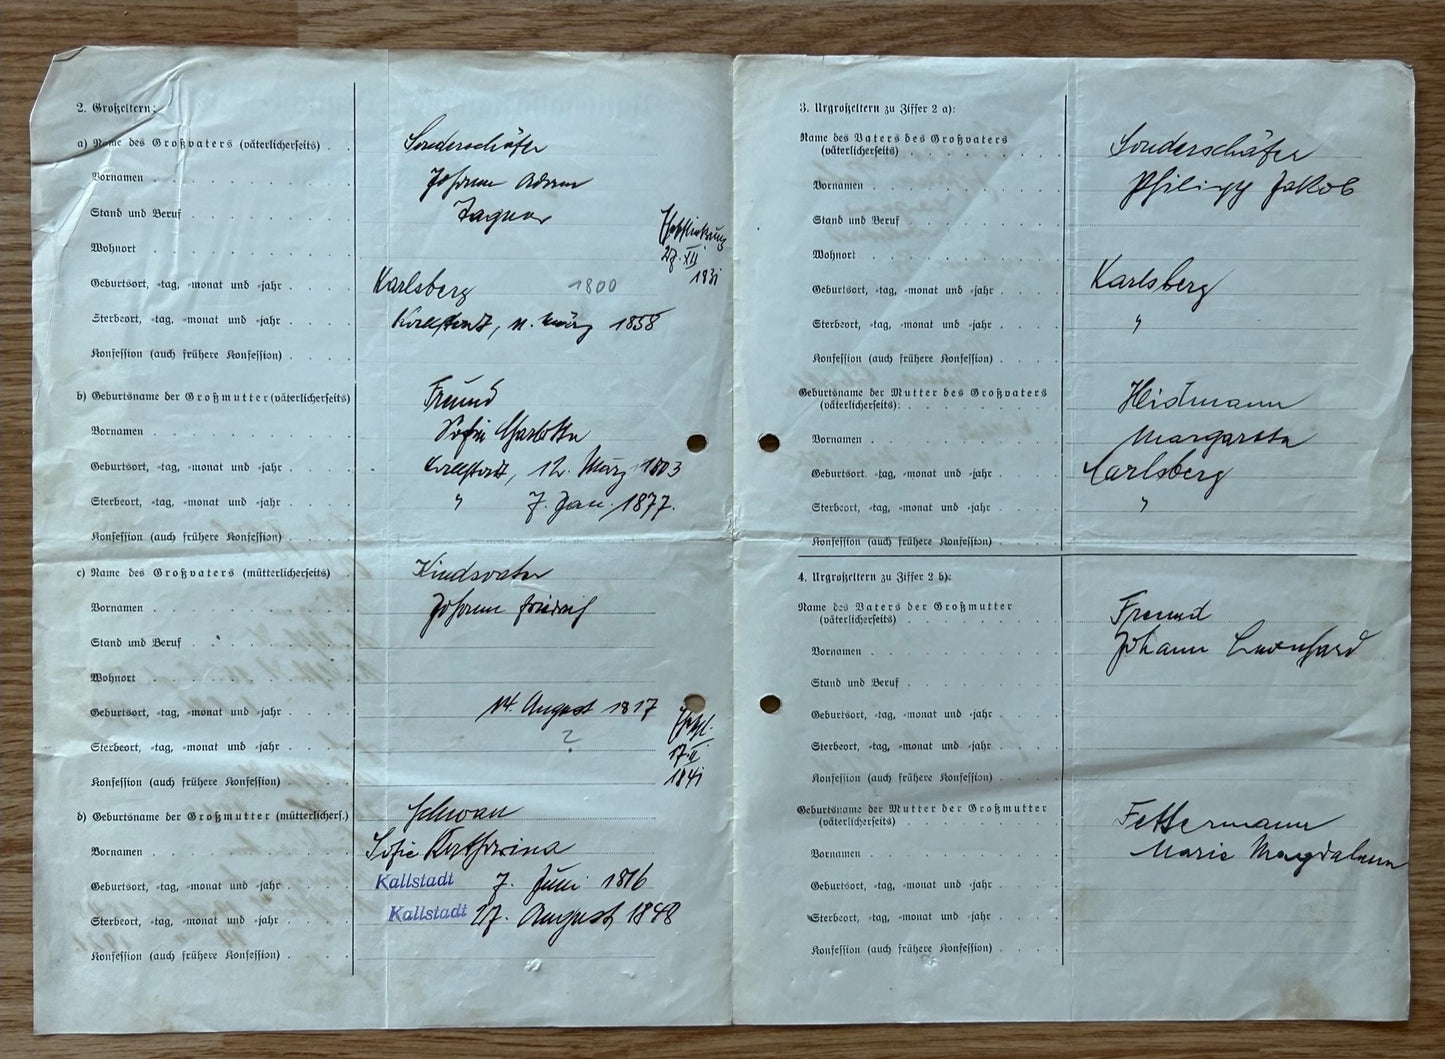 2. Großeltern:
a) Name des Großvaters (väterlicherseits) . . Sonderschäfer
Vornamen . . . . . . . . Johann Adam
Stand und Beruf . . . . . . . Tagner
Wohnort . . . . . . . .
27. XII
1831
Geburtsort, -tag, -monat und -jahr . . . . Karlsberg 1800
Sterbeort, -tag, -monat und -jahr . . . . Kallstadt, 11. März 1858
Konfession (auch frühere Konfession) . . . .
b) Geburtsname der Großmutter (väterlicherseits) Freund
Vornamen . . . . . . . . Sofie Charlotta
Geburtsort, -tag, -monat und -jahr . . . . Kallstadt, 12. März 1803
Sterbeort, -tag, -monat und -jahr . . . . " 7. Jan. 1877.
Konfession (auch frühere Konfession) . . . .
c) Name des Großvaters (mütterlicherseits) . Kindsvater
Vornamen . . . . . . . . Johann Friedrich
Stand und Beruf . . . . . . .
Wohnort . . . . . . . .
Geburtsort, -tag, -monat und -jahr . . . . 14. August 1817
Sterbeort, -tag, -monat und -jahr . . . . ?
17. II
1841
Konfession (auch frühere Konfession) . . . .
d) Geburtsname der Großmutter (mütterlichers.) Schwan
Vornamen . . . . . . . . Sofie Katharina
Geburtsort, -tag, -monat und -jahr . . . . Kallstadt 7. Juni 1816
Sterbeort, -tag, -monat und -jahr . . . . Kallstadt 27. August 1848
Konfession (auch frühere Konfession) . . . .
3. Urgroßeltern zu Ziffer 2 a):
Name des Vaters des Großvaters Sonderschäfer
(väterlicherseits) . . . . . . .
Vornamen . . . . . . . . Philipp Jakob
Stand und Beruf . . . . . . .
Wohnort . . . . . . . .
Geburtsort, -tag, -monat und -jahr . . . . Karlsberg
Sterbeort, -tag, -monat und -jahr . . . . "
Konfession (auch frühere Konfession) . . . .
Geburtsname der Mutter des Großvaters Heidmann
(väterlicherseits): . . . . . . .
Vornamen . . . . . . . . Margareta
Geburtsort, -tag, -monat und -jahr . . . . Karlsberg
Sterbeort, -tag, -monat und -jahr . . . . "
Konfession (auch frühere Konfession) . . . .
4. Urgroßeltern zu Ziffer 2 b):
Name des Vaters der Großmutter Freund
(väterlicherseits) . . . . . . .
Vornamen . . . . . . . . Johann Leonhard
Stand und Beruf . . . . . . .
Geburtsort, -tag, -monat und -jahr . . . .
Sterbeort, -tag, -monat und -jahr . . . .
Konfession (auch frühere Konfession) . . . .
Geburtsname der Mutter der Großmutter Fettermann
(väterlicherseits) . . . . . . .
Vornamen . . . . . . . . Marie Magdalena
Geburtsort, -tag, -monat und -jahr . . . .
Sterbeort, -tag, -monat und -jahr . . . .
Konfession (auch frühere Konfession) . . . .